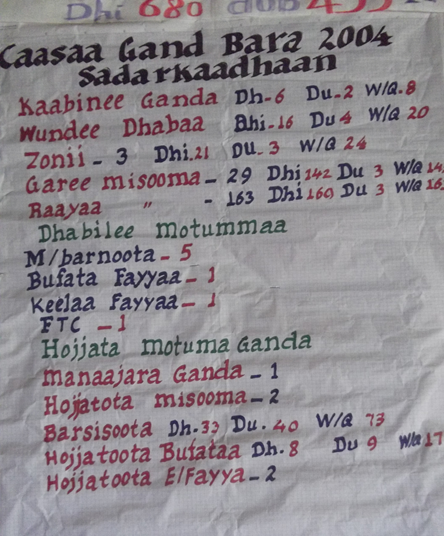 Dhi 680 dub 455
Caasaa Gand Bara 2004
Sadarkaadhaan
Kaabinee Ganda Dh-6 Du-2 W/Q.8
Wundee Dhabaa Bhi-16 Du 4 W/Q 20
Zonii - 3 Dhi.21 DU-3 W/Q 24
Garee misooma - 29 Dhi 142 Du 3 W/Q 14
Raayaa " - 163 Dhi 160 Du 3 W/Q 16
Dhabilee motummaa
M/barnoota - 5
Bufata Fayyaa - 1
Keelaa Fayyaa - 1
FTC - 1
Hojjata motuma Ganda
manaajara Ganda - 1
Hojjatota misooma - 2
Barsisoota Dh.33 Du.40 W/Q 73
Hojjatoota Bufataa Dh.8 Du 9 W/Q 17
Hojjatoota E/Fayya - 2